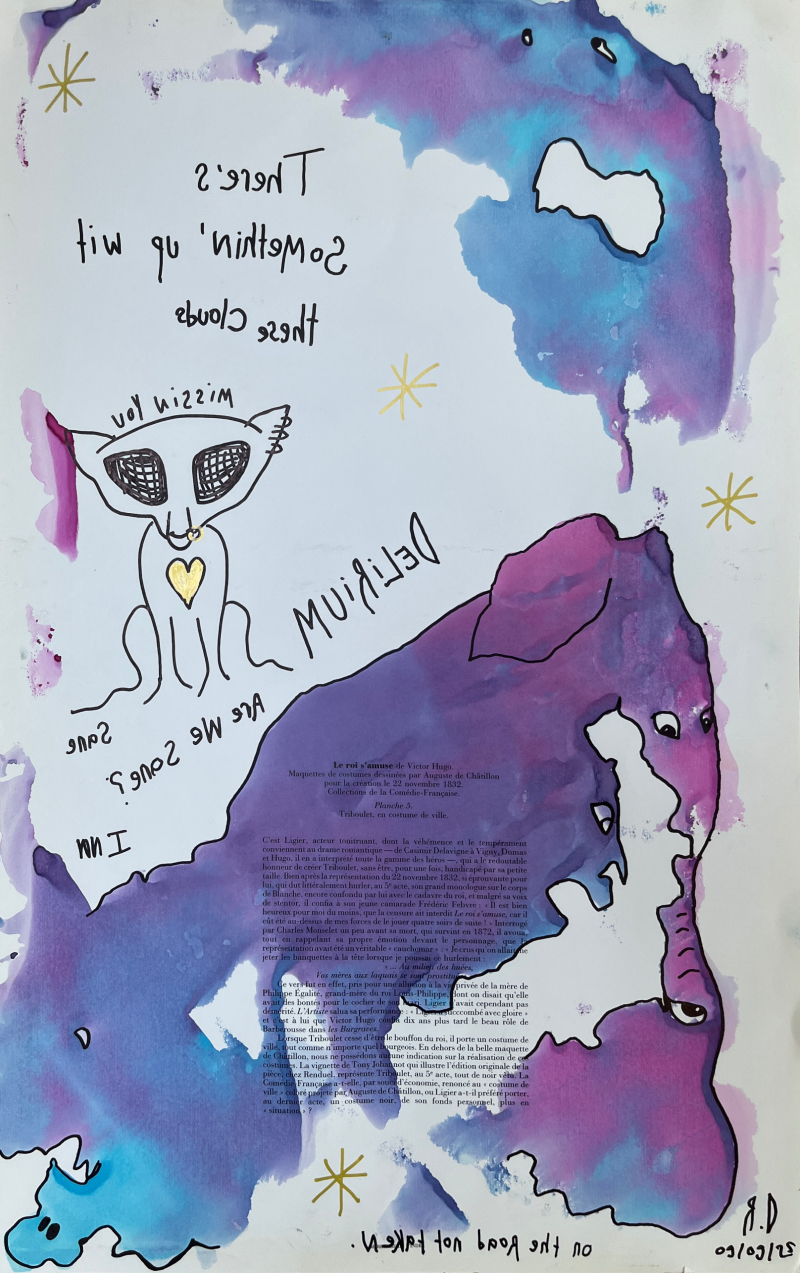 There's
Somethin' up wit
these Clouds
missin You
DELiRiUM
Sane
Are We Sane?
Inn
Le roi s'amuse de Victor Hugo.
Maquettes de costumes dessinées par Auguste de Châtillon
pour la création le 22 novembre 1832.
Collections de la Comédie-Française.
Planche 5.
Triboulet, en costume de ville.
C'est Ligier, acteur tonitruant, dont la véhémence et le tempérament
conviennent au drame romantique — de Casimir Delavigne à Vigny, Dumas
et Hugo, il en a interprété toute la gamme des héros —, qui a le redoutable
honneur de créer Triboulet, sans être, pour une fois, handicapé par sa petite
taille. Bien après la représentation du 22 novembre 1832, si éprouvante pour
lui, qui dut littéralement hurler, au 5e acte, son grand monologue sur le corps
de Blanche, encore confondu par lui avec le cadavre du roi, et malgré sa voix
de stentor, il confia à son jeune camarade Frédéric Febvre : « Il est bien
heureux pour moi du moins, que la censure ait interdit Le roi s'amuse, car il
eût été au-dessus de mes forces de le jouer quatre soirs de suite ! » Interrogé
par Charles Monselet un peu avant sa mort, qui survint en 1872, il avoua,
tout en rappelant sa propre émotion devant le personnage, que la
représentation avait été un véritable « cauchemar » : « Je crus qu'on allait me
jeter les banquettes à la tête lorsque je poussai ce hurlement
« ... Au milieu des huées,
Vos mères aux laquais se sont prostituées
Ce vers fut en effet, pris pour une allusion à la vie privée de la mère de
Philippe Égalité, grand-mère du roi Louis-Philippe, dont on disait qu'elle
avait des bontés pour le cocher de son Ligier n'avait cependant pas
démérité. L'Artiste salua sa performance : « Ligier a succombé avec gloire »
et c'est à lui que Victor Hugo confia dix ans plus tard le beau rôle de
Barberousse dans les Burgraves.
Lorsque Triboulet cesse d'être le bouffon du roi, il porte un costume de
ville, tout comme n'importe quel bourgeois. En dehors de la belle maquette
de Châtillon, nous ne possédons aucune indication sur la réalisation de ce
costume. La vignette de Tony Johannot qui illustre l'édition originale de la
pièce, chez Renduel, représente Triboulet, au 5e acte, tout de noir vêtu. La
Comédie-Française a-t-elle, par souci d'économie, renoncé au « costume de
ville » coloré projeté par Auguste de Châtillon, ou Ligier a-t-il préféré porter,
au dernier acte, un costume noir, de son fonds personnel, plus en
« situation » ?
on the Road not takeN.
J.R